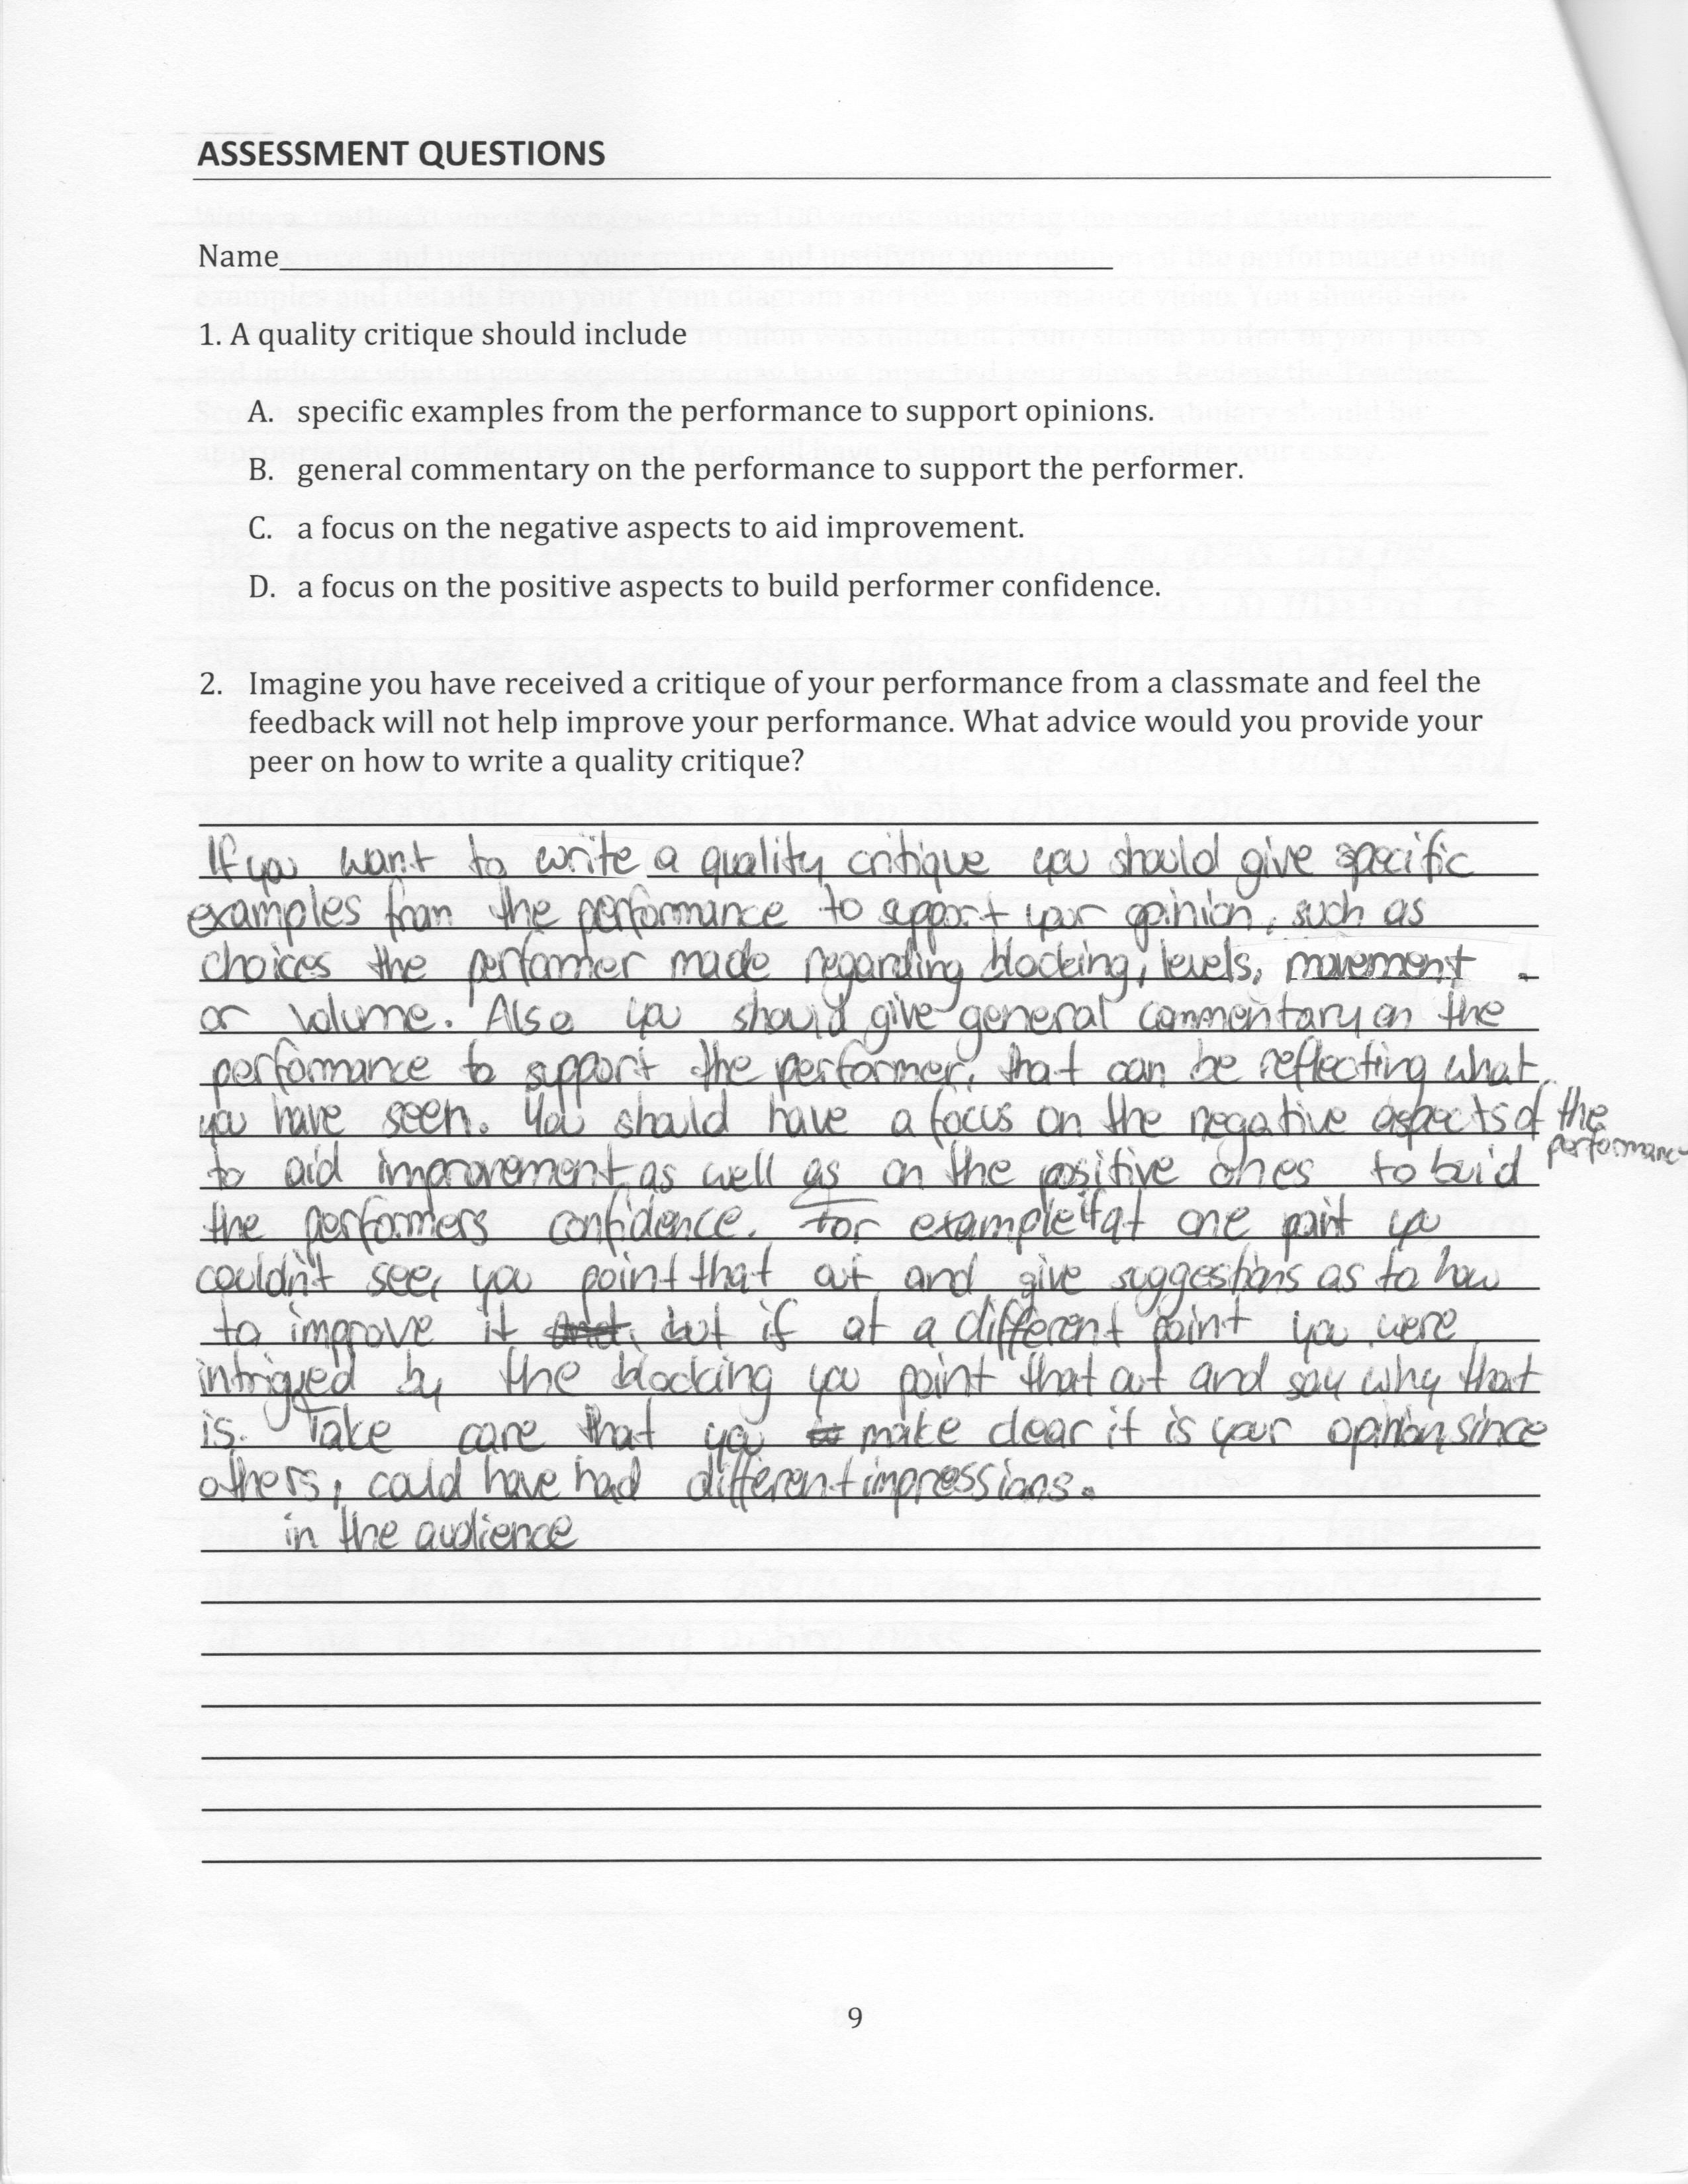 ASSESSMENT QUESTIONS
Name
1. A quality critique should include
A. specific examples from the performance to support opinions.
B. general commentary on the performance to support the performer.
C. a focus on the negative aspects to aid improvement.
D. a focus on the positive aspects to build performer confidence.
2. Imagine you have received a critique of your performance from a classmate and feel the
feedback will not help improve your performance. What advice would you provide your
peer on how to write a quality critique?
If you want to write a quality critique you should give specific
examples from the performance to support your opinion, such as
choices the performer made regarding blocking, levels, movement
or volume. Also you should give general commentary on the
performance to support the performer, that can be reflecting what
you have seen. You should have a focus on the negative aspects of the
performance
to aid improvement as well as on the positive ones to build
the performers confidence. For example if at one point you
couldn't see, you point that out and give suggestions as to how
to improve it but if at a different point you were
intrigued by the blocking you point that out and say why that
is. Take care that you make clear it is your opinion, since
others, could have had different impressions.
in the audience
9